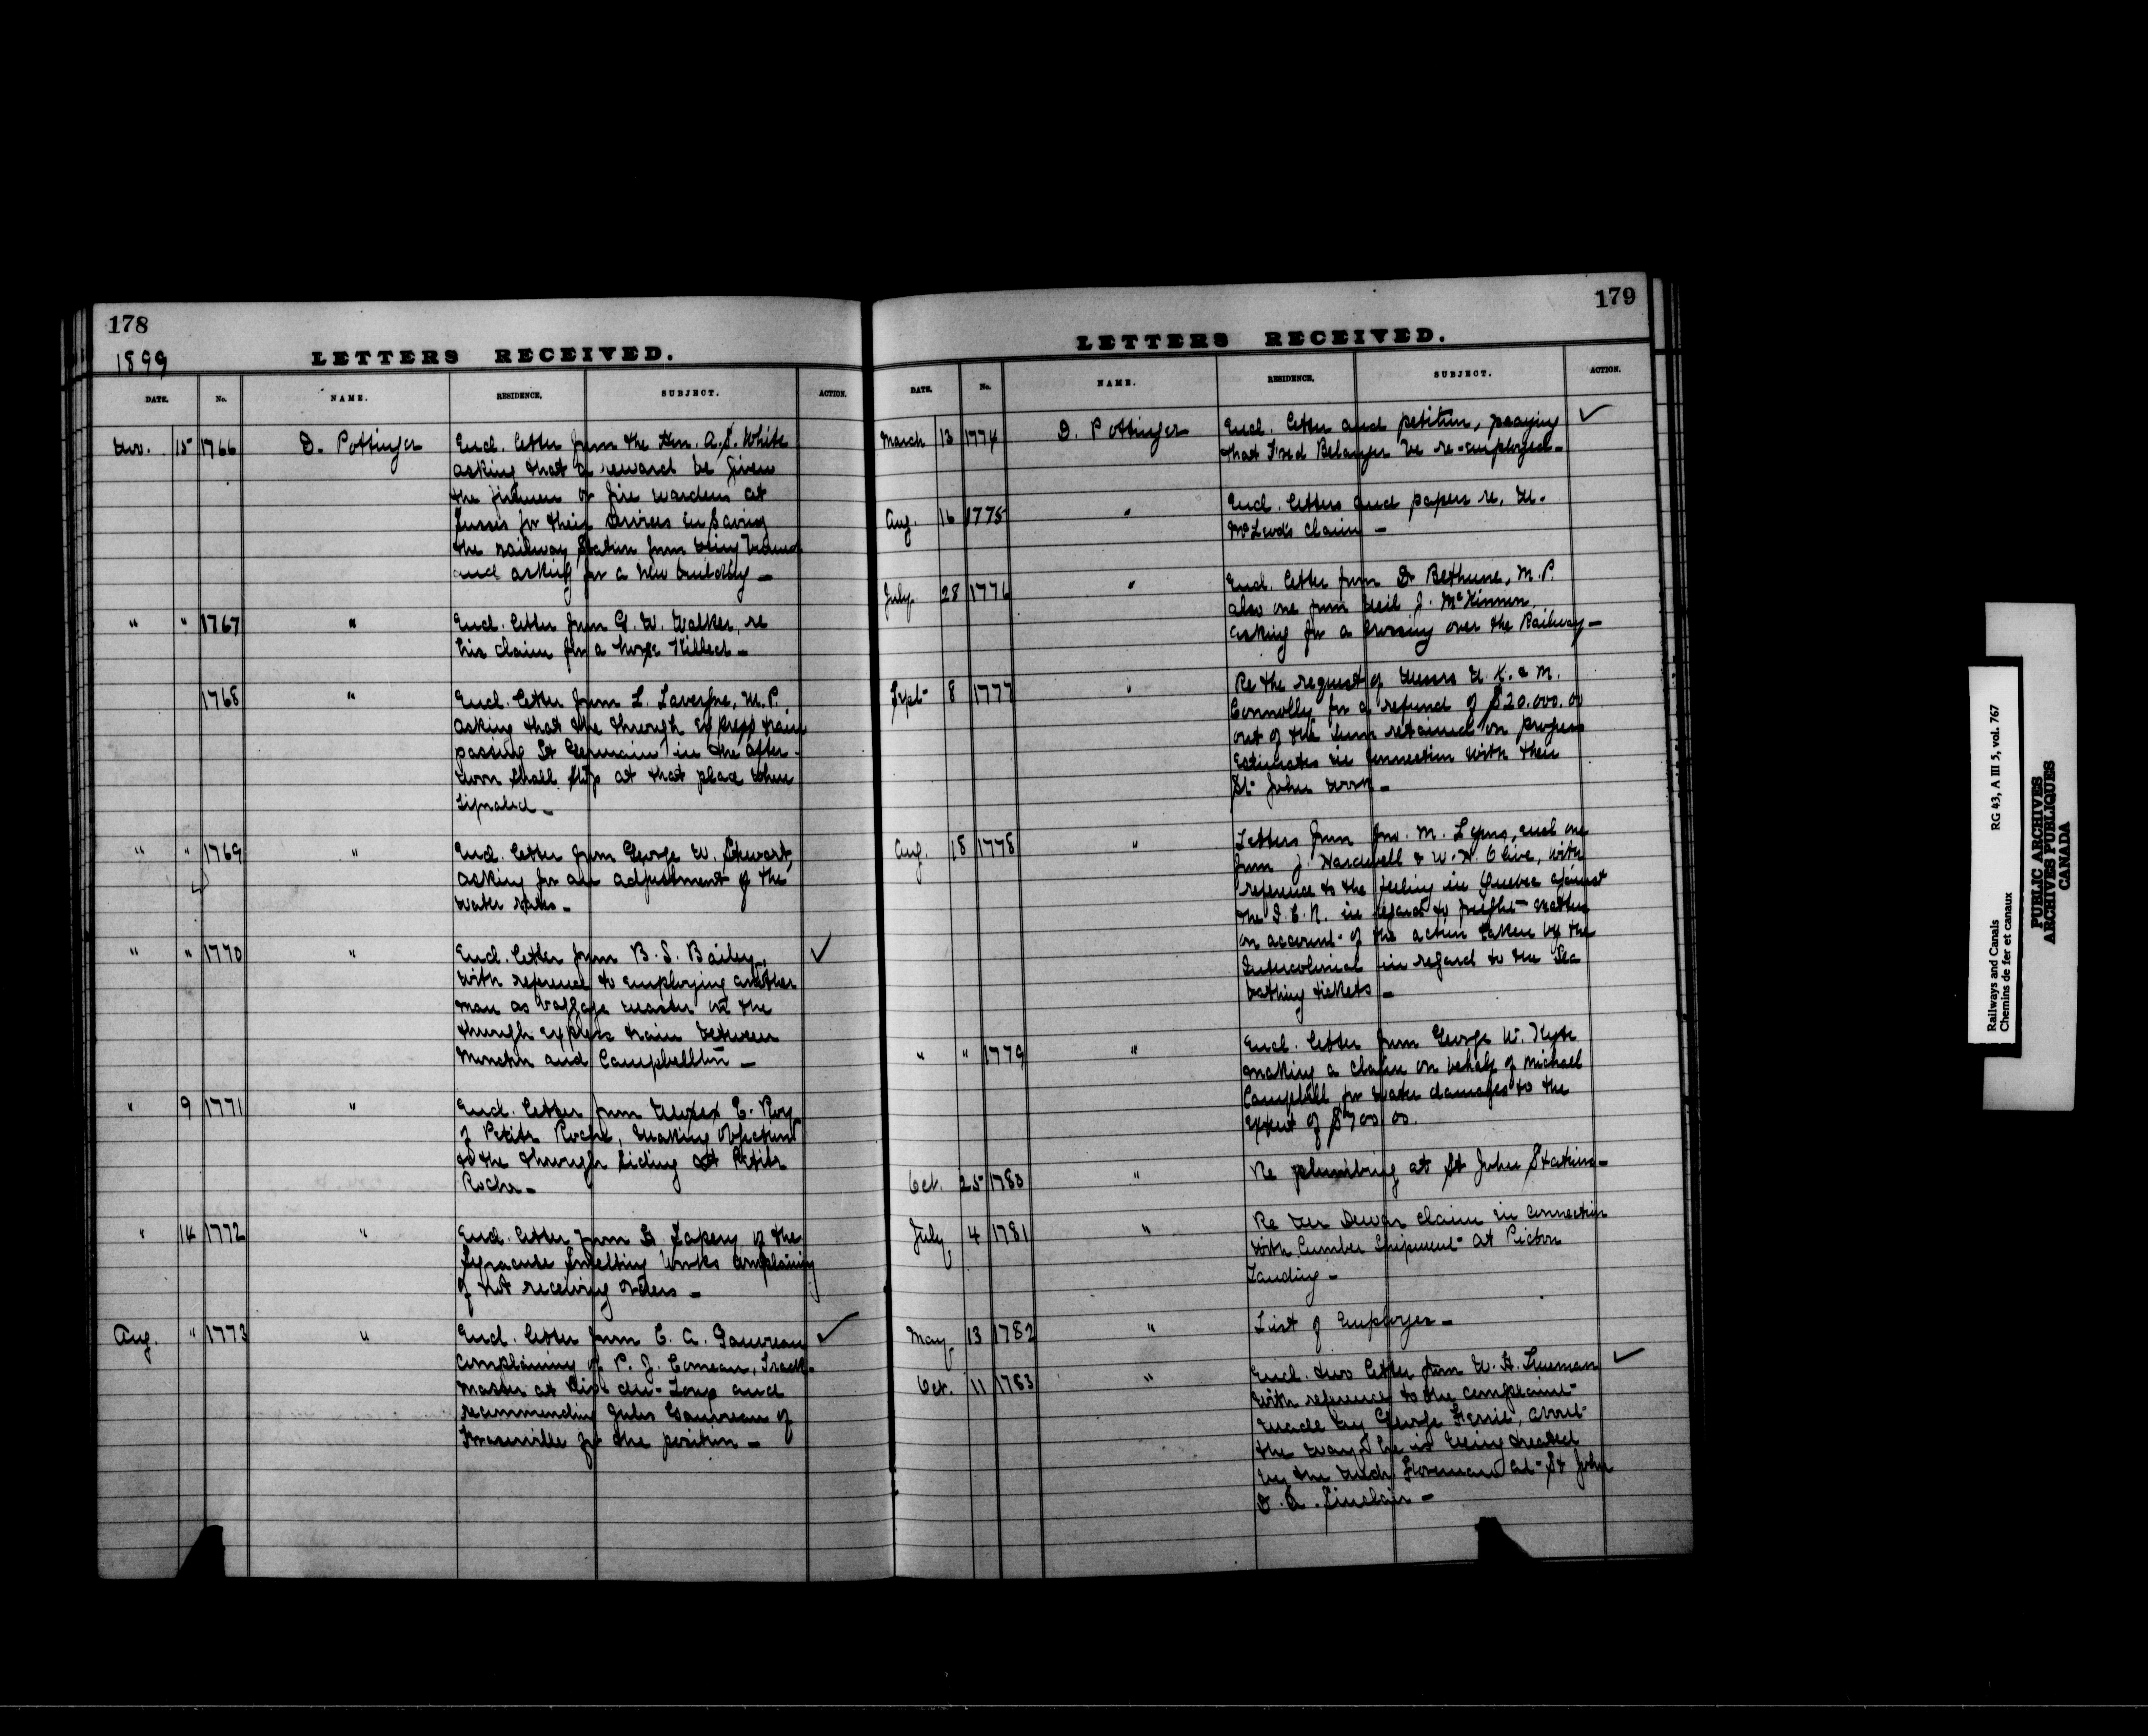 178
1899
LETTERS RECEIVED.
DATE. No. NAME. RESIDENCE. SUBJECT. ACTION.
Nov. 15 1766 D. Pottinger Encl. letter from the Hon. A. S. White
asking that a reward be given
the firemen or fire wardens at
Sussex for their services in saving
the railway station from being burned
and asking for a new building -
" " 1767 " Encl. letter from G. W. Walker, re
his claim for a horse killed -
1768 " Encl. letter from L. Lavergne, M.P.
asking that the through express train
passing St Germain in the after-
noon shall stop at that place when
signaled -
" " 1769 " Encl. letter from George W. Stewart,
asking for an adjustment of the
water rates -
" " 1770 " Encl. letter from B. S. Bailey, ✓
with reference to employing another
man as baggage master on the
through express train between
Moncton and Campbellton -
" 9 1771 " Encl. letter from E. Roy
of Petite Roche, making objections
to the through siding at Petite
Roche -
" 14 1772 " Encl. letter from of the
Syracuse Smelting Works complaining
of not receiving orders -
Aug. " 1773 " Encl. letter from C. A. Gauvreau ✓
complaining of P. J. Comeau, Track-
master at Rivi du-Loup and
recommending Jules Gauvreau of
Fraserville for the position -
179
LETTERS RECEIVED.
DATE. No. NAME. RESIDENCE. SUBJECT. ACTION.
March 13 1774 D. Pottinger Encl. letter and petition, praying ✓
that Fred Belanger be re-employed -
Aug. 16 1775 " Encl. letters and papers re, W.
McLeods claim -
July 28 1776 " Encl. letter from Dr Bethune, M.P.
also one from Neil J. McKinnon,
asking for a crossing over the Railway -
Sept 8 1777 " Re the request of Messrs N. K. & M.
Connolly for a refund of $20.000.00
out of the sum retained on progress
estimates in connection with their
St John work -
Aug. 18 1778 " Letters from Jno. M. Lyons, and one
from J. Hardwell & W. H. Olive, with
reference to the feeling in Quebec against
the I. C. R. in regard to freight matters
on account of the action taken by the
Intercolonial in regard to the Sea
bathing tickets -
" " 1779 " Encl. letter from George W. Kyte
making a claim on behalf of Michael
Campbell for water damages to the
extent of $700 00.
Oct. 25 1780 " Re plumbing at St John Station -
July 4 1781 " Re Dewar claim in connection
with lumber shipment at Pictou
Landing -
May 13 1782 " List of Employes -
Oct. 11 1783 " Encl. two letter from W. H. Trueman ✓
with reference to the complaint
made by George , about
the way he is being treated
by the Mech Foreman at St John
A. Sinclair -
Railways and Canals RG 43, A III 5, vol. 767
Chemins de fer et canaux
PUBLIC ARCHIVES
ARCHIVES PUBLIQUES
CANADA